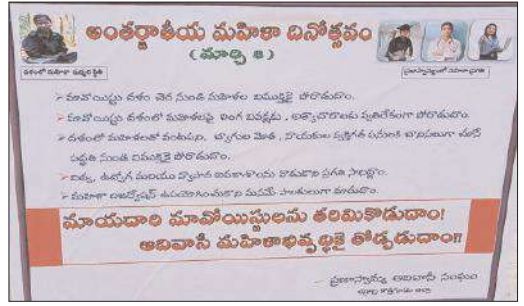 అంతర్జాతీయ మహిళా దినోత్సవం
(మార్చి 8)
దళంలో మహిళా
➢ మావోయిస్టు దళం చెర నుండి మహిళల విముక్తికై పోరాడుదాం.
➢ మావోయిస్టు దళంలో మహిళలపై లింగ వివక్షకు, అత్యాచారాలకు వ్యతిరేకంగా పోరాడుదాం.
➢ దళంలో మహిళలతో వంటపని, బ్యాగుల మోత, నాయకుల వ్యక్తిగత పనులకు బానిసలుగా చూసే
పద్ధతి నుండి విముక్తికై పోరాడుదాం.
➢ విద్య, ఉద్యోగ మరియు వ్యాపార అవకాశాలను ప్రగతి
➢ మహిళా రిజర్వేషన్ ఉపయోగించుకొని మనమే పాలకులుగా మారుదాం.
మాయదారి మావోయిస్టులను తరిమికొడుదాం!
ఆదివాసీ మహిళాభివృద్ధికై తోడ్పడుదాం!!
- ప్రజాస్వామ్య ఆదివాసి సంఘం